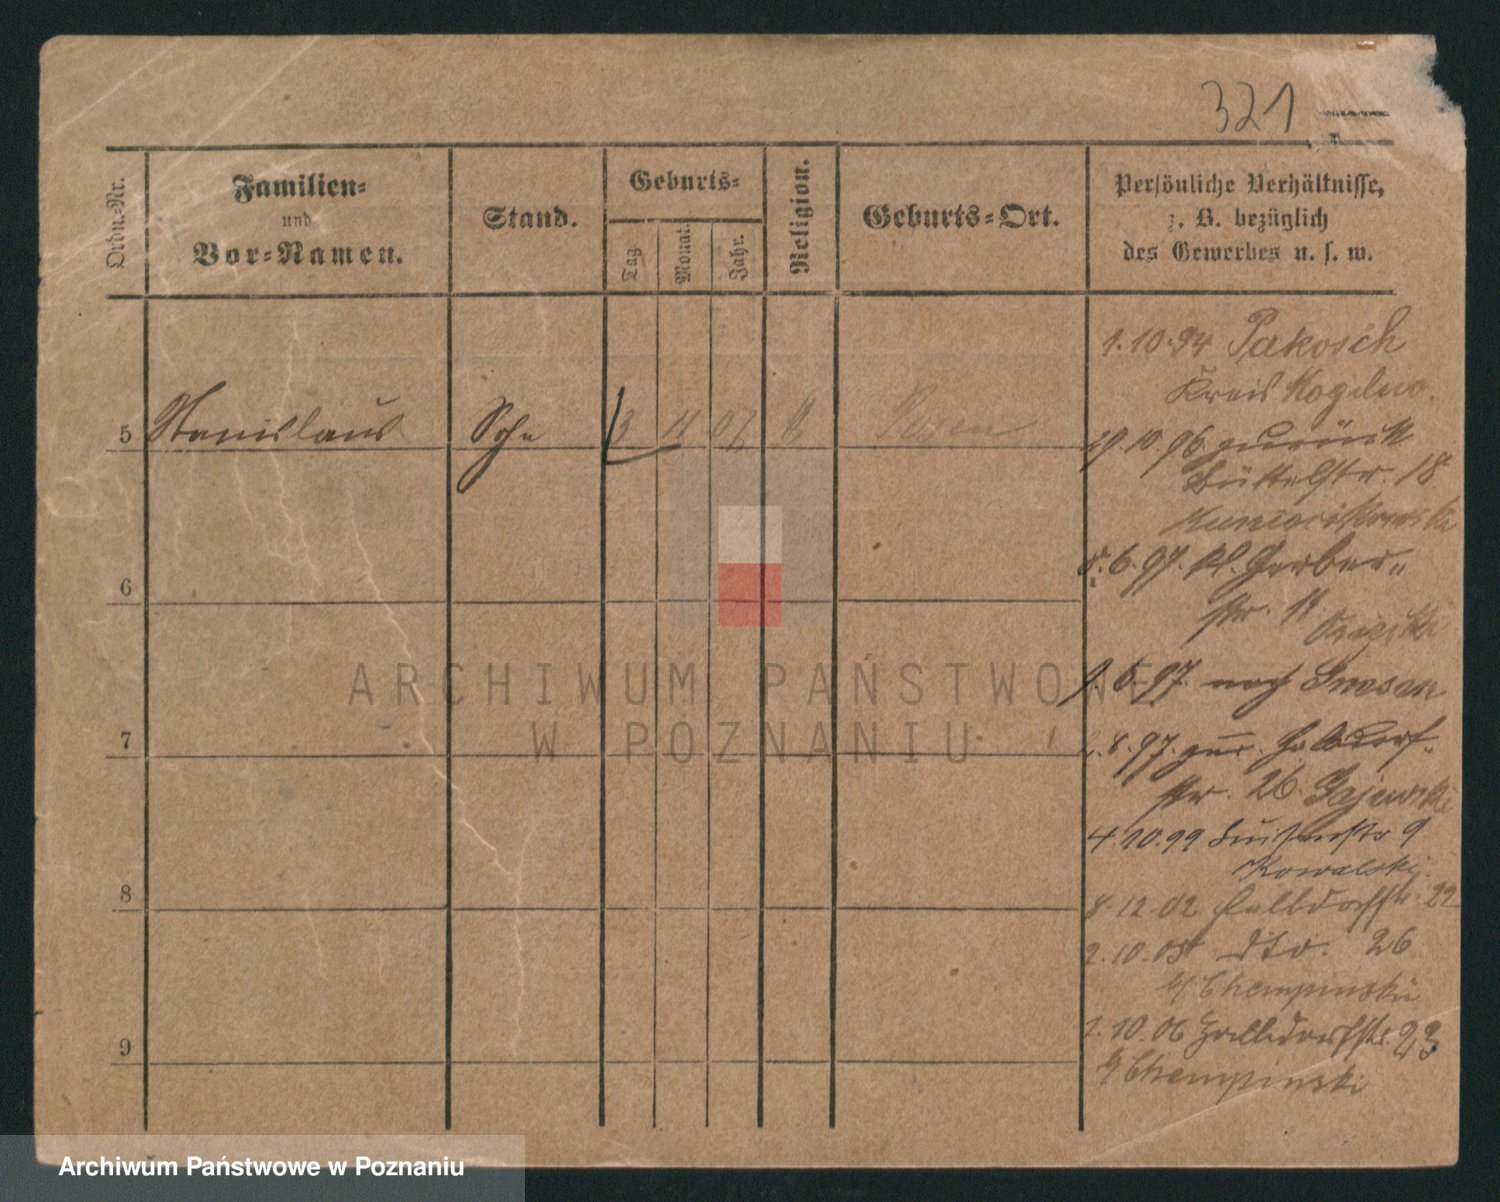 321
Ordn.-Nr.
Familien-
und
Vor-Namen.
Stand.
Geburts-
Tag
Monat.
Jahr.
Religion.
Geburts-Ort.
Persönliche Verhältnisse,
z. B. bezüglich
des Gewerbes u. s. w.
5 Stanislaus Sohn 3 11 07 Posen
6
7
8
9
1.10.94 Pakosch
Kreis Mogilno.
29.10.96 zurück
Büttelstr. 18
8.6.97. kl. Gerber-
str. 11
9.6.97. nach Gnesen
2.8.97. zur. Halbdorf-
str. 26 Gajewski
4.10.99 Luisenstr 9
Kowalski.
8.12.02 Halbdorfstr. 22
2.10.05 dto. 26
b/ Chempinski
1.10.06 Halbdorfstr. 23
b/ Chempinski
ARCHIWUM PAŃSTWOWE
W POZNANIU
Archiwum Państwowe w Poznaniu